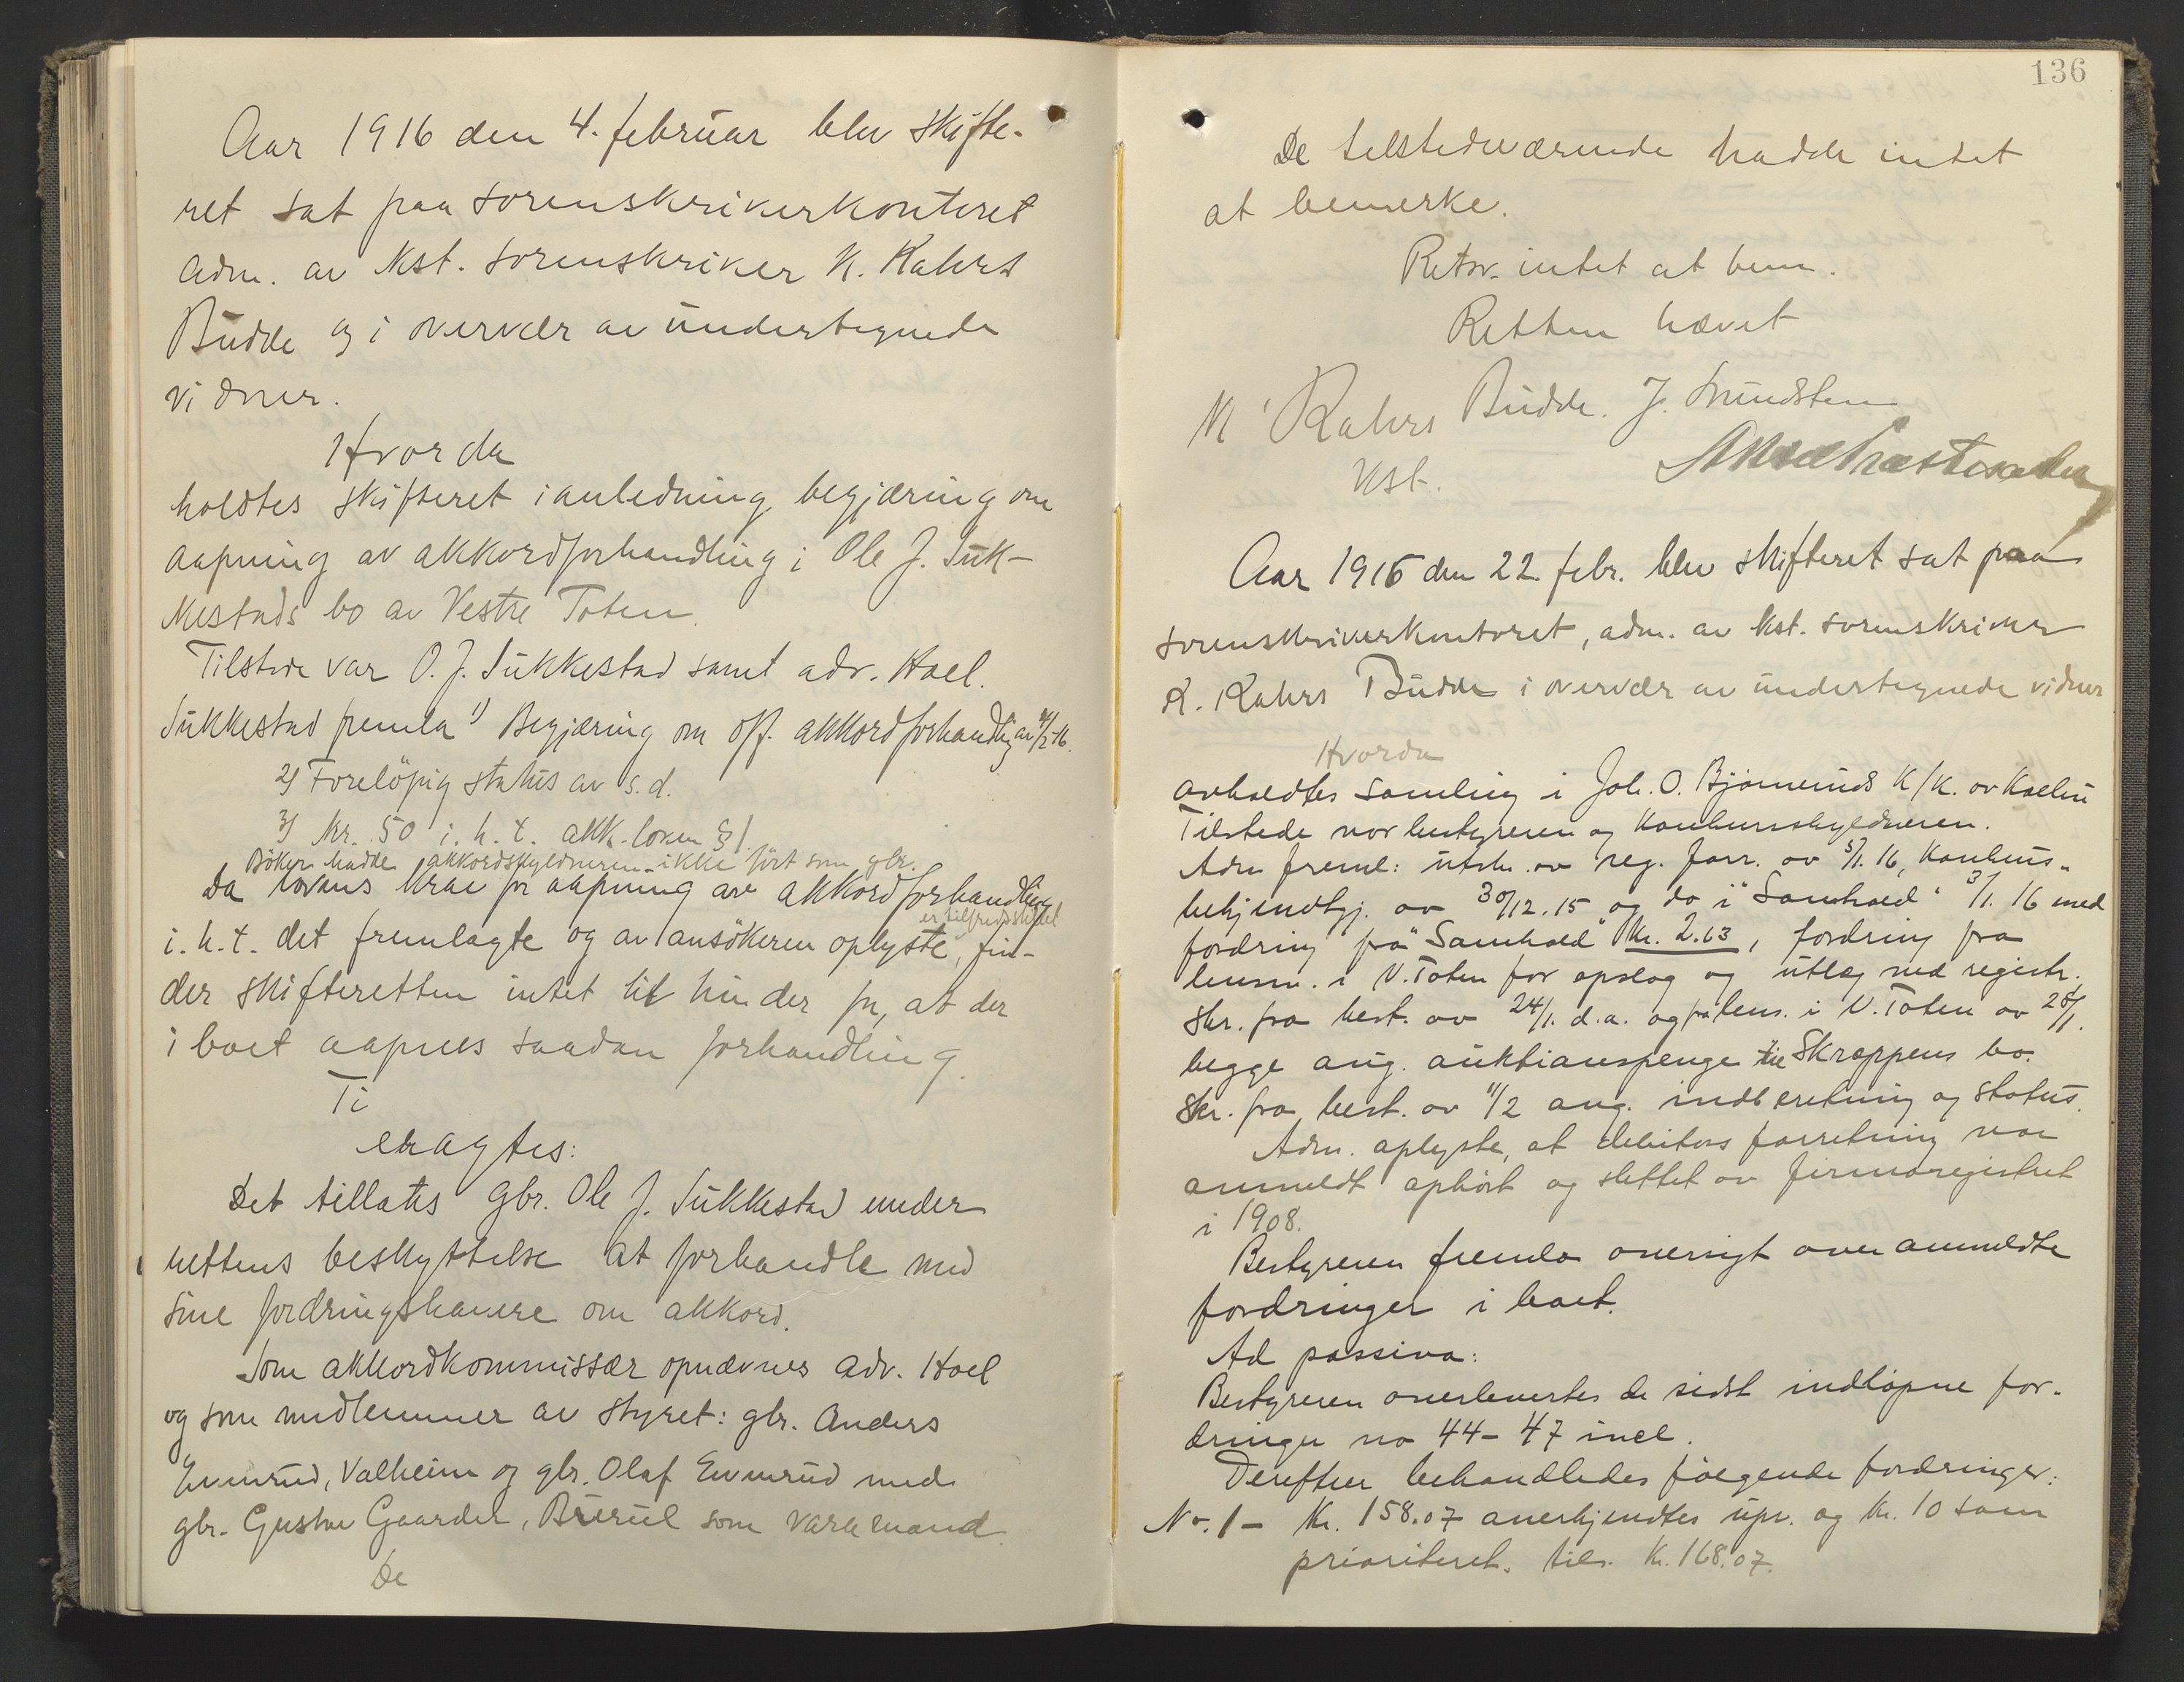 Aar 1916 den 4. februar blev skifte-
ret sat paa sorenskriverkontoret
adm. av kst. sorenskriver K. Kahrs
Budde og i overvær av undertegnede
vidner.
Hvorda
holdtes skifteret i anledning begjæring om
aapning av akkordforhandling i Ole J. Suk-
kestads bo av Vestre Toten.
Tilstede var O. J. Sukkestad samt adv. Hoel.
Sukkestad fremla 1) Begjæring om off. akkordforhandlig av 4/2 16.
2) Foreløpig status av s. d.
3) Kr. 50 i. h. t. akk.loven § 1.
Bøker hadde akkordskyldneren ikke ført som gbr.
Da lovens krav for aapning av akkordforhandling
er tilfredsstillet
i. h. t. det fremlagte og av ansøkeren oplyste, fin-
der skifteretten intet til hinder for, at der
i boet aapnes saadan forhandling.
Ti
eragtes:
Det tillates gbr. Ole J. Sukkestad under
rettens beskyttelse at forhandle med
sine fordringshavere om akkord.
Som akkordkommissær opnævnes adv. Hoel
og som medlemmer av styret: gbr. Anders
Evenrud, Valheim og gbr. Olaf Evenrud med
gbr. Gustav Gaarder, som varamand.
De
136
De tilstedeværende hadde intet
at bemerke.
Retsv. intet at bem.
Retten hævet
K Kahrs Budde. J. Sundsten
kst.
Aar 1916 den 22. febr. blev skifteret sat paa
sorenskriverkontoret, adm. av kst. sorenskriver
K. Kahrs Budde i overvær av undertegnede vidner
Hvorda
avholdtes samling i Joh. O. Bjørnerud's K/K. av Kolbu
Tilstede var bestyreren og konkursskyldneren.
Adm freml: utsk. av reg. forr. av 5/1. 16, konkurs-
bekjendtgj. av 30/12. 15 og do i "Samhold" 3/1. 16 med
fordring fra "Samhold" Kr. 2.63, fordring fra
lensm. i V. Toten for opslag og utlæg ved registr.
Skr. fra best. av 24/1. d. a. og fra lens. i V. Toten av 28/1.
begge ang. auktionspenge til Skræppens bo.
Skr. fra best. av 11/2 ang. indberetning og status.
Adm. oplyste, at debitors forretning var
anmeldt ophørt og slettet av firmaregistret
i 1908.
Bestyreren fremla oversigt over anmeldte
fordringer i boet.
Ad passiva:
Bestyreren overlevertes de sidst indløpne for-
dringer no 44 - 47 incl.
Derefter behandledes følgende fordringer:
No. 1 - Kr. 158.07 anerkjendtes upr. og kr. 10 som
prioritert. tils. kr. 168.07.